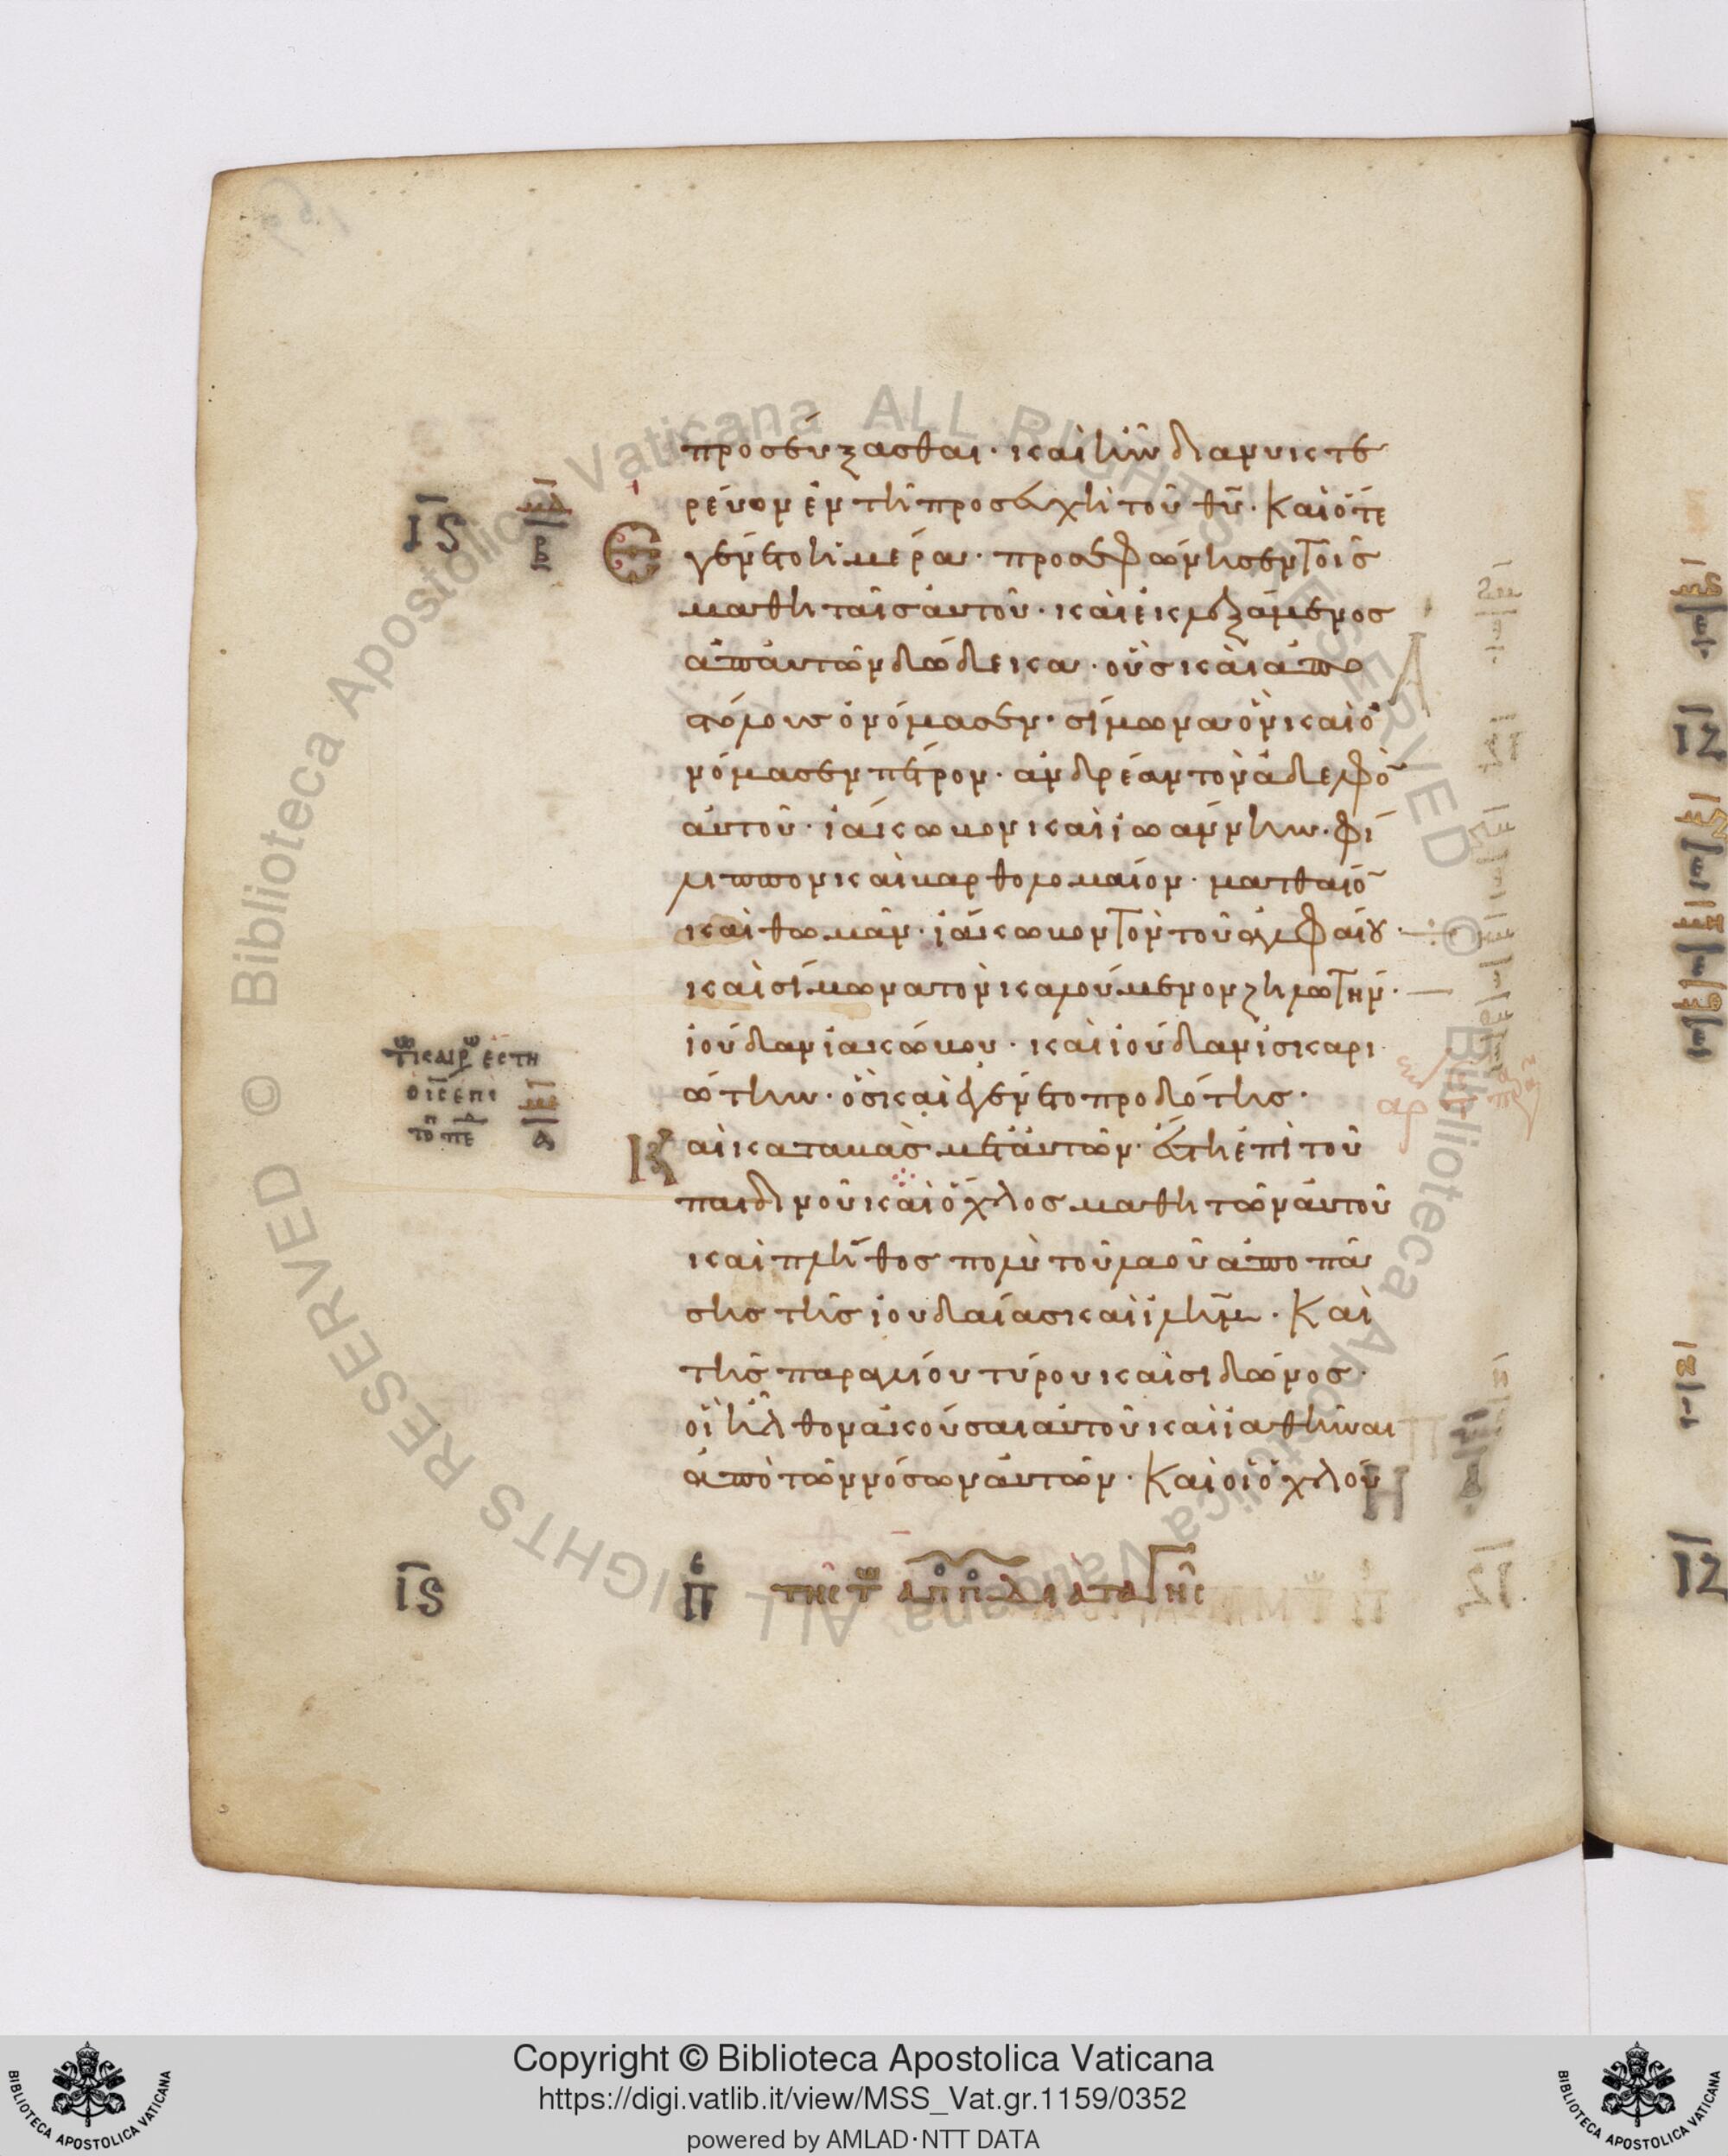 προσεύξασθαι· καὶ ἦν διανυκτε
ρεύων ἐν τῆ προσευχῆ τοῦ θῡ· Καὶ ὅτε
ΙϚ μδ β Ἐγένετο ἡμέρα· προσεφώνησεν τοῖς
μαθηταῖς αὐτοῦ· καὶ ἐκλεξάμενος
ἀπ αὐτῶν δώδεκα· οὓς καὶ ἀπο
στόλους ὀνόμασεν· σίμωνα ὃν καὶ ὀ
νόμασεν πέτρον· ἀνδρέαν τὸν ἀδελφὸ
αὐτοῦ· ἰάκωβον καὶ ἰωάννην· φί
λιππον καὶ βαρθολομαίον· ματθαίο
καὶ θωμᾶν· ἰάκωβον τὸν τοῦ ἀλφαίου·
καὶ σίμωνα τὸν καλούμενον ζηλωτὴν·
ἰούδαν ἰακώβου· καὶ ἰούδαν ἰσκαρι
ώτην· ὃς καὶ ἐγένετο προδότης·
Καὶ καταβὰς μετ αὐτῶν· ἔστη ἐπὶ τοῦ
πεδινοῦ καὶ ὄχλος μαθητῶν αὐτοῦ
καὶ πλῆθος πολὺ τοῦ λαοῦ ἀπο πά
σης τῆς ἰουδαίας καὶ ἰλημ̄· Καὶ
τῆς παραλίου τύρου καὶ σιδῶνος·
οἳ ἦλθον ἀκοῦσαι αὐτοῦ καὶ ἰαθῆναι
ἀπὸ τῶν νόσων αὐτῶν· Καὶ οἱ ὀχλού
ΙϚ π τῆς τ απ π διαταγῆς
ΙΖ
ΙΖ
BIBLIOTECA APOSTOLICA VATICANA
Copyright © Biblioteca Apostolica Vaticana
https://digi.vatlib.it/view/MSS_Vat.gr.1159/0352
powered by AMLAD·NTT DATA
BIBLIOTECA APOSTOLICA VATICANA
© Biblioteca Apostolica Vaticana ALL RIGHTS RESERVED © Biblioteca Apostolica Vaticana ALL RIGHTS RESERVED